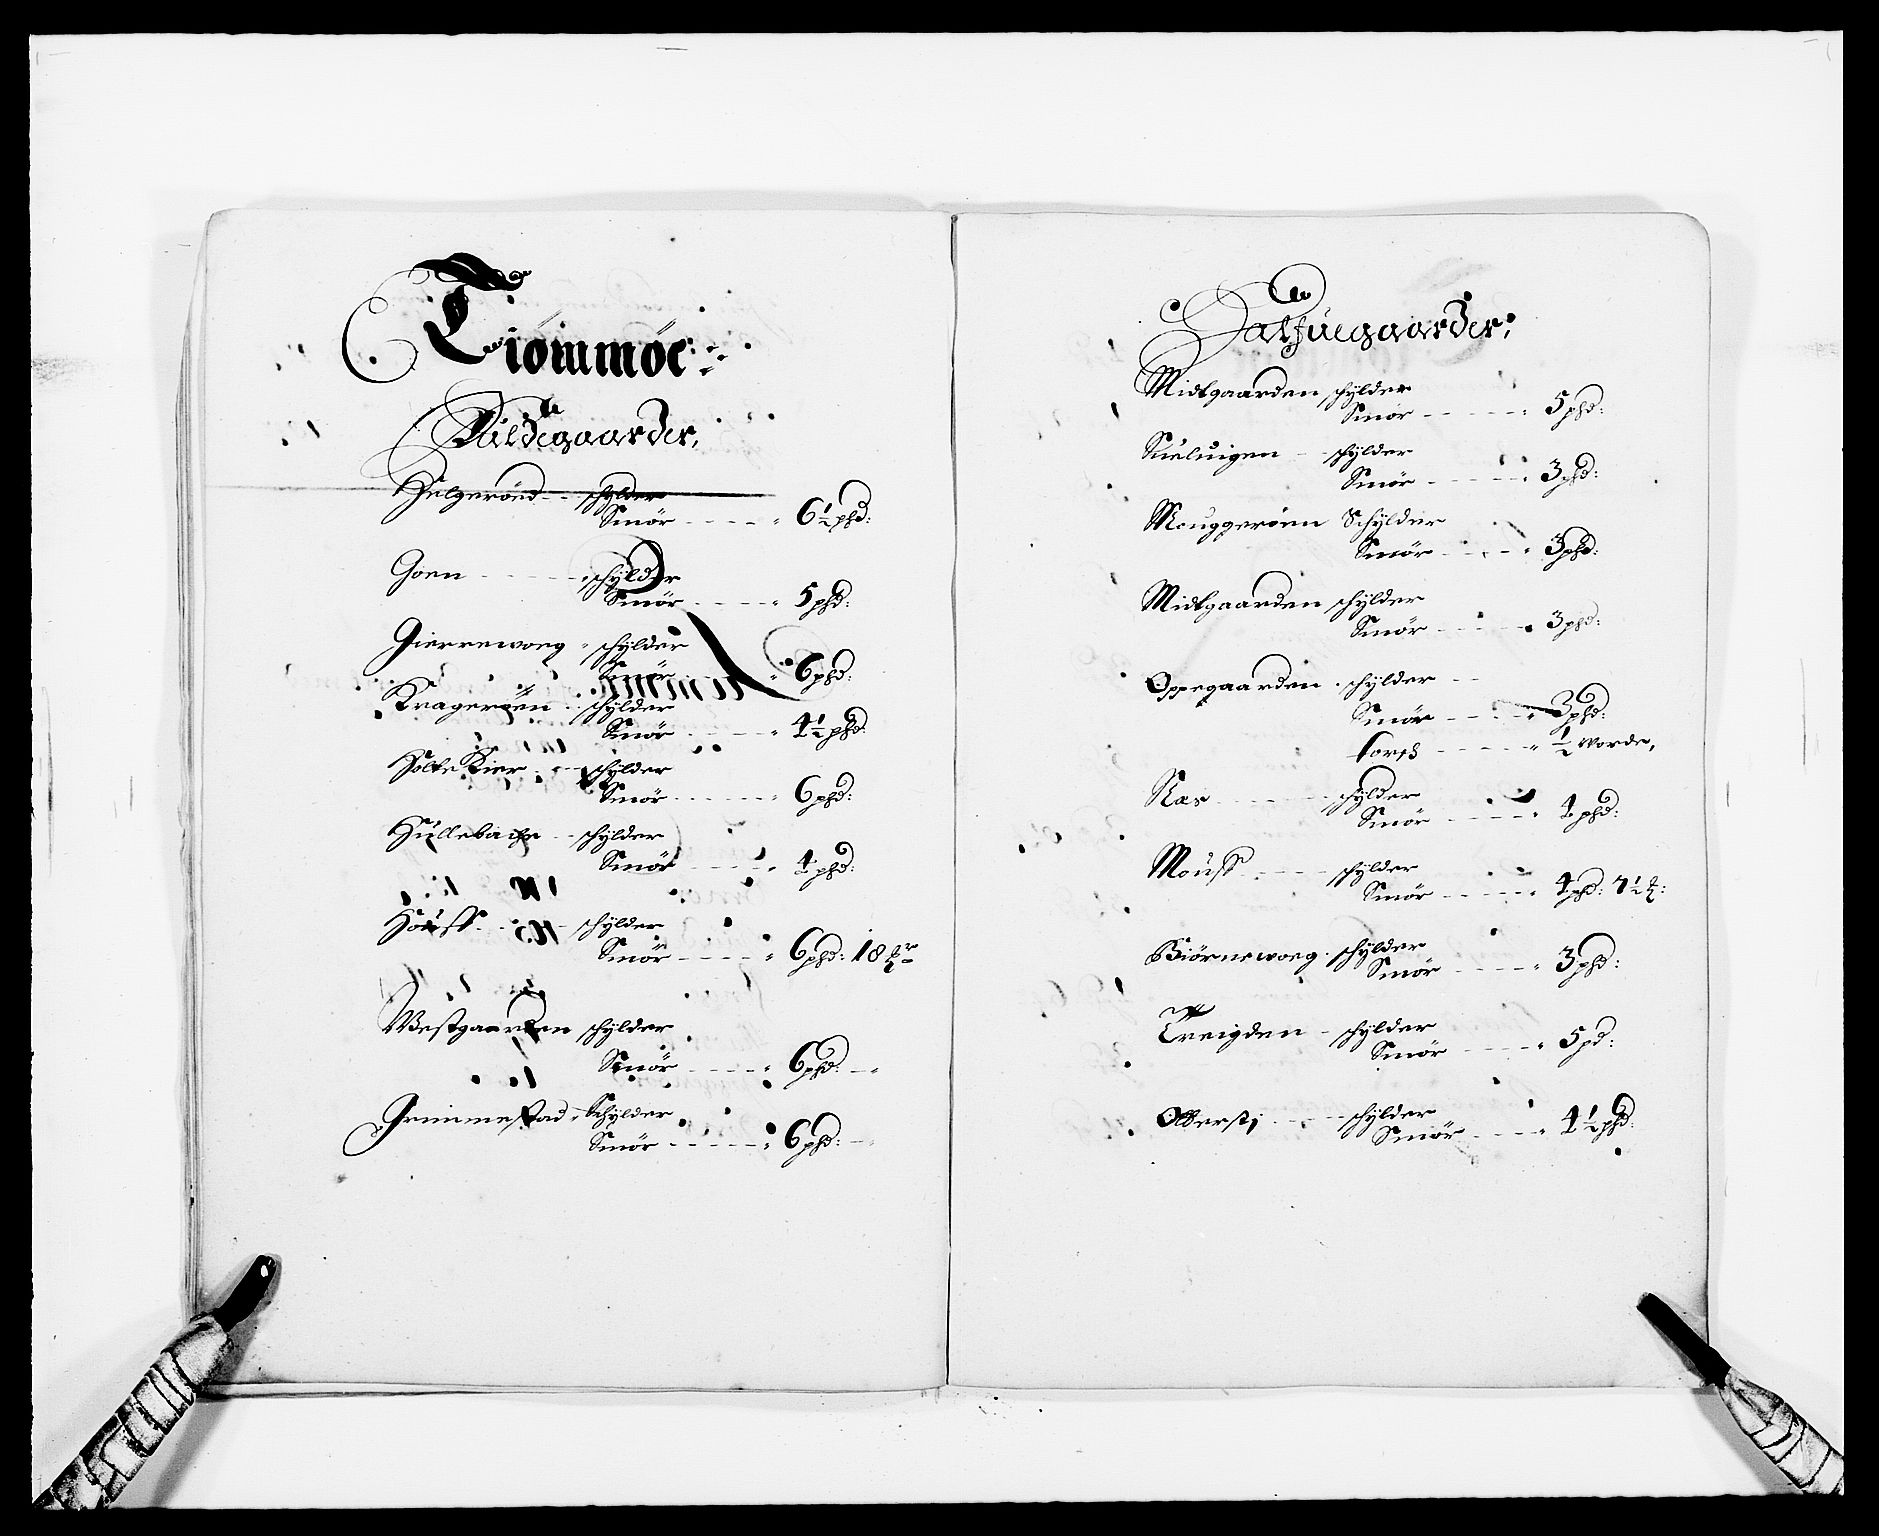 Tiømmøe
Fuldegaarder,
Helgeröed -- schylder
Smör ---- 6½ phd:
Goen ---- schylder
Smör ---- 5 phd:
Gierrewoeg - schylder
Smör 6 phd:
Krageröen -- schylder
Smör ---- 4½ phd:
Holte Kier --- schylder
Smör ---- 6 phd:
Hüllebache -- schylder
Smör ---- 4 phd:
Hoüff --- schylder
Smör ---- 6 phd: 18
Westgaarden schylder
Smör ---- 6 phd: --
Grimmestad - Schylder
Smör ---- 6 phd: --
Halfuegaarder,
Midtgaarden schylder
Smör ---- 5 phd:
Süeluigen -- schylder
Smör ---- 3 phd:
Mouggeröen Schylder
Smör ---- 3 phd:
Midtgaarden schylder
Smör ---- 3 phd:
Oppegaarden - schylder --
Smör ---- 3 phd:
Torsch ---- ½ worde,
Næs ---- schylder
Smör ---- 4 phd:
Moüff ---- schylder
Smör ---- 4 phd: 7½
Biörnewoeg - schylder
Smör ---- 3 phd:
Treigden - schylder
Smör ---- 5 pd:
---- schylder
Smör ---- 4½ phd: